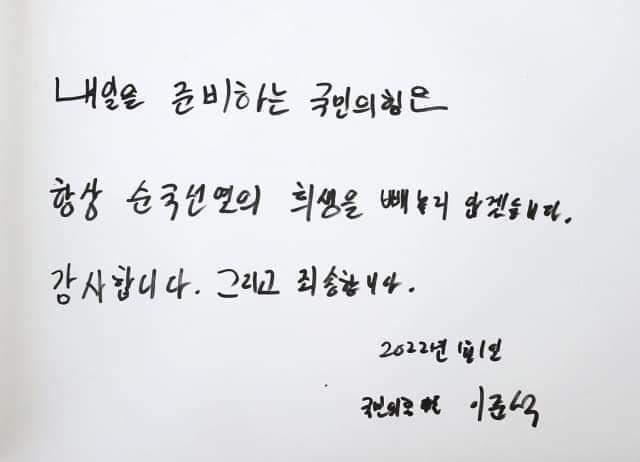 내일을 준비하는 국민의힘은
항상 순국선열의 희생을 빼놓지 않겠습니다.
감사합니다. 그리고 죄송합니다.
2022년 1월 1일
이준석